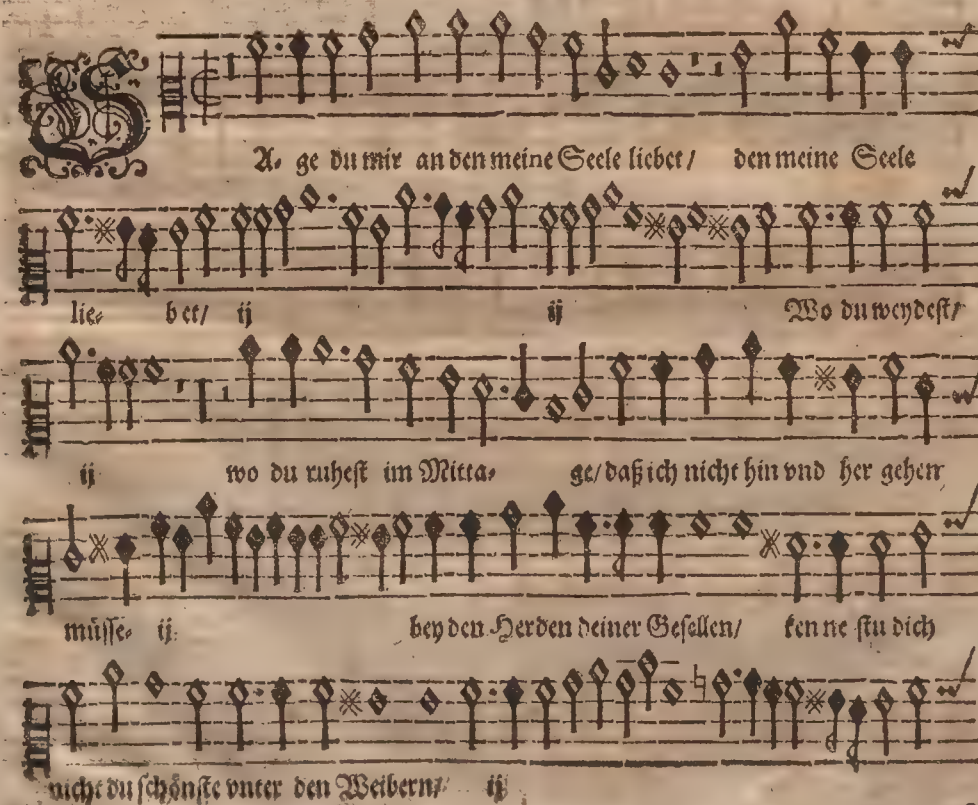 SA- ge du mir an den meine Seele liebet/ den meine Seele
lie- bet/ ij ij Wo du weydest/
ij wo du ruhest im Mitta- ge/ daß ich nicht hin vnd her gehen
müsse- ij bey den Herden deiner Gesellen/ ken ne stu dich
nicht du schönste vnter den Weibern/ ij